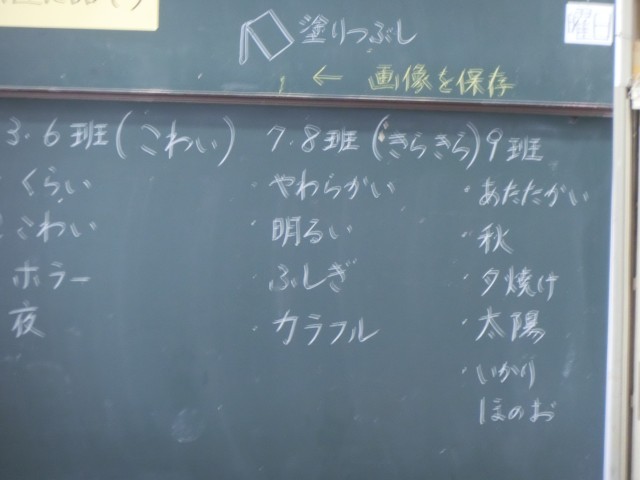 塗りつぶし
曜日
← 画像を保存
3.6班(こわい)
・くらい
・こわい
ホラー
夜
7.8班(きらきら)
・やわらかい
・明るい
・ふしぎ
・カラフル
9班
・あたたかい
・秋
・夕焼け
・太陽
・いかり
ほのお